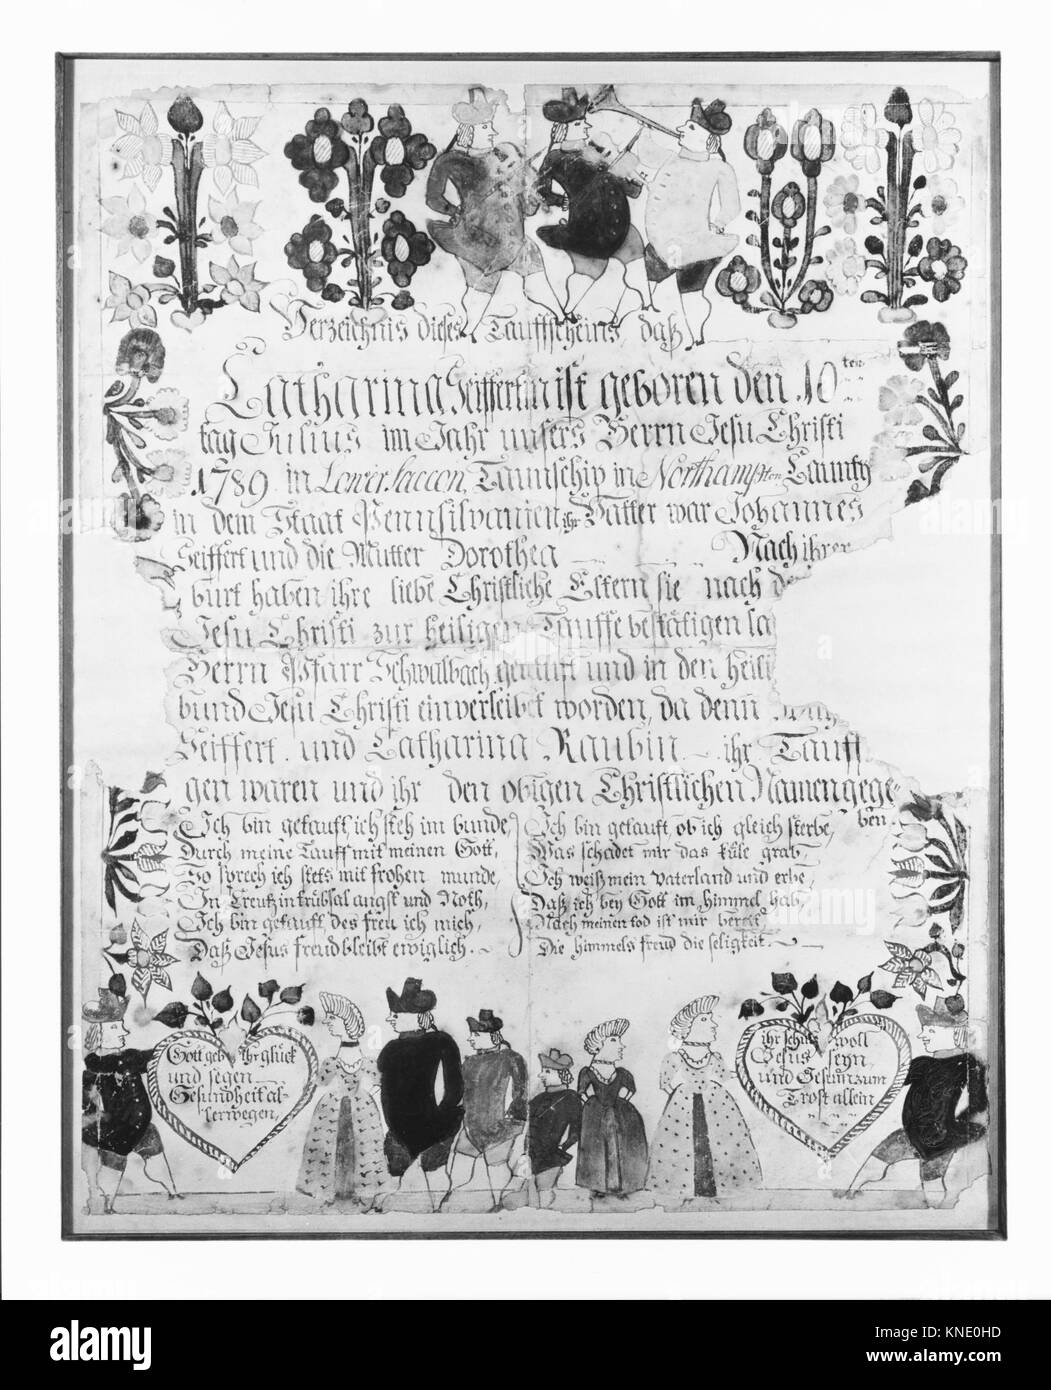 Verzeichnis dieses Tauffscheins daß
Catharina Seiffertin ist geboren den 10ten
tag Julius im Jahr unsers Herrn Jesu Christi
1789 in Lower Saccon Taunschip in Northampton Caunty
in dem Staat Pennsilvanien ihr Vatter war Johannes
Seiffert und die Mutter Dorothea Nach ihrer
burt haben ihre liebe Christliche Eltern sie nach
Jesu Christi zur heiligen Tauffe bestätigen
Herrn Pfarr Schwalbach getaufft und in den
bund Jesu Christi einverleibet worden, da denn
Seiffert und Catharina Raubin ihr Tauff
gen waren und ihr den obigen Christlichen Namen gege-
ben.
Ich bin getauft, ich steh im bunde,
Durch meine Tauff mit meinen Gott,
So sprech ich stets mit frohen munde,
In Creutz in trübsal angst und Noth,
Ich bin getauft des freu ich mich,
Daß Jesus freud bleibt ewiglich.
Ich bin getauft, ob ich gleich sterbe,
Was schadet mir das küle grab,
Ich weiß mein vaterland und erbe,
Daß ich bey Gott im himmel hab,
Nach meinen tod ist mir bereit
Die himmels freud die seligkeit.
Gott geb ihr glück
und segen
Gesundheit al-
lerwegen,
ihr schutz woll
Jesus seyn
und Gesund zum
Trost allein
alamy
Image ID: KNE0HD
www.alamy.com